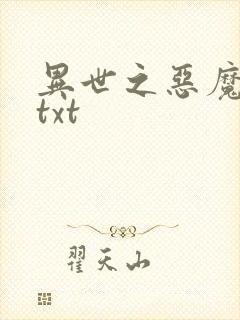 異世之惡魔
txt
翟天山